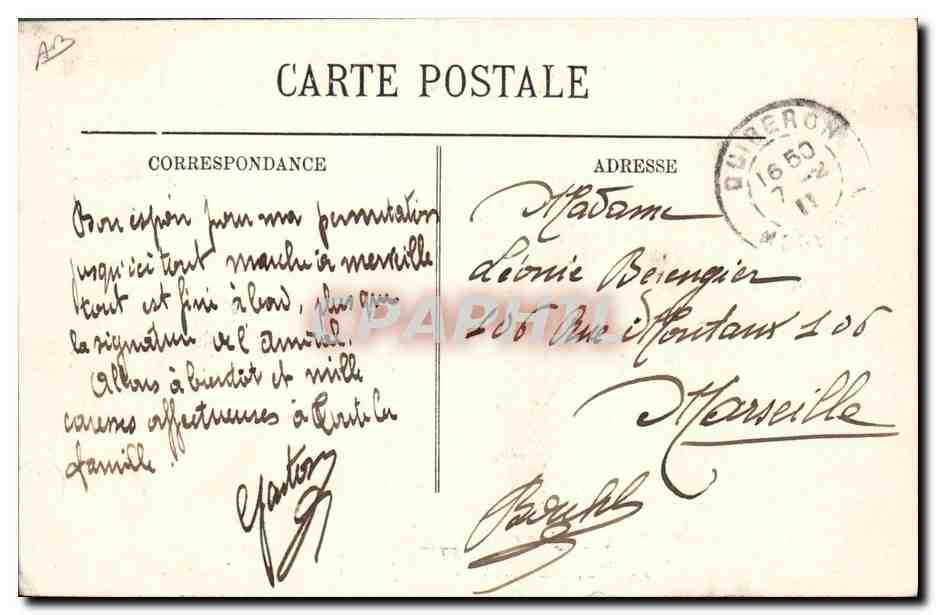 AB
CARTE POSTALE
CORRESPONDANCE
Bon espoir pour ma permutation
jusqu'ici tout marche à merveille
tout est fini à bord, plus que
la signature de l'amiral.
Allons à bientôt et mille
caresses affectueuses à toute la
famille.
Gaston
ADRESSE
QUIBERON
16 50
7
11
Madame
Léonie Beiengier
106 Rue Montaux 106
Marseille
CPAPHIL